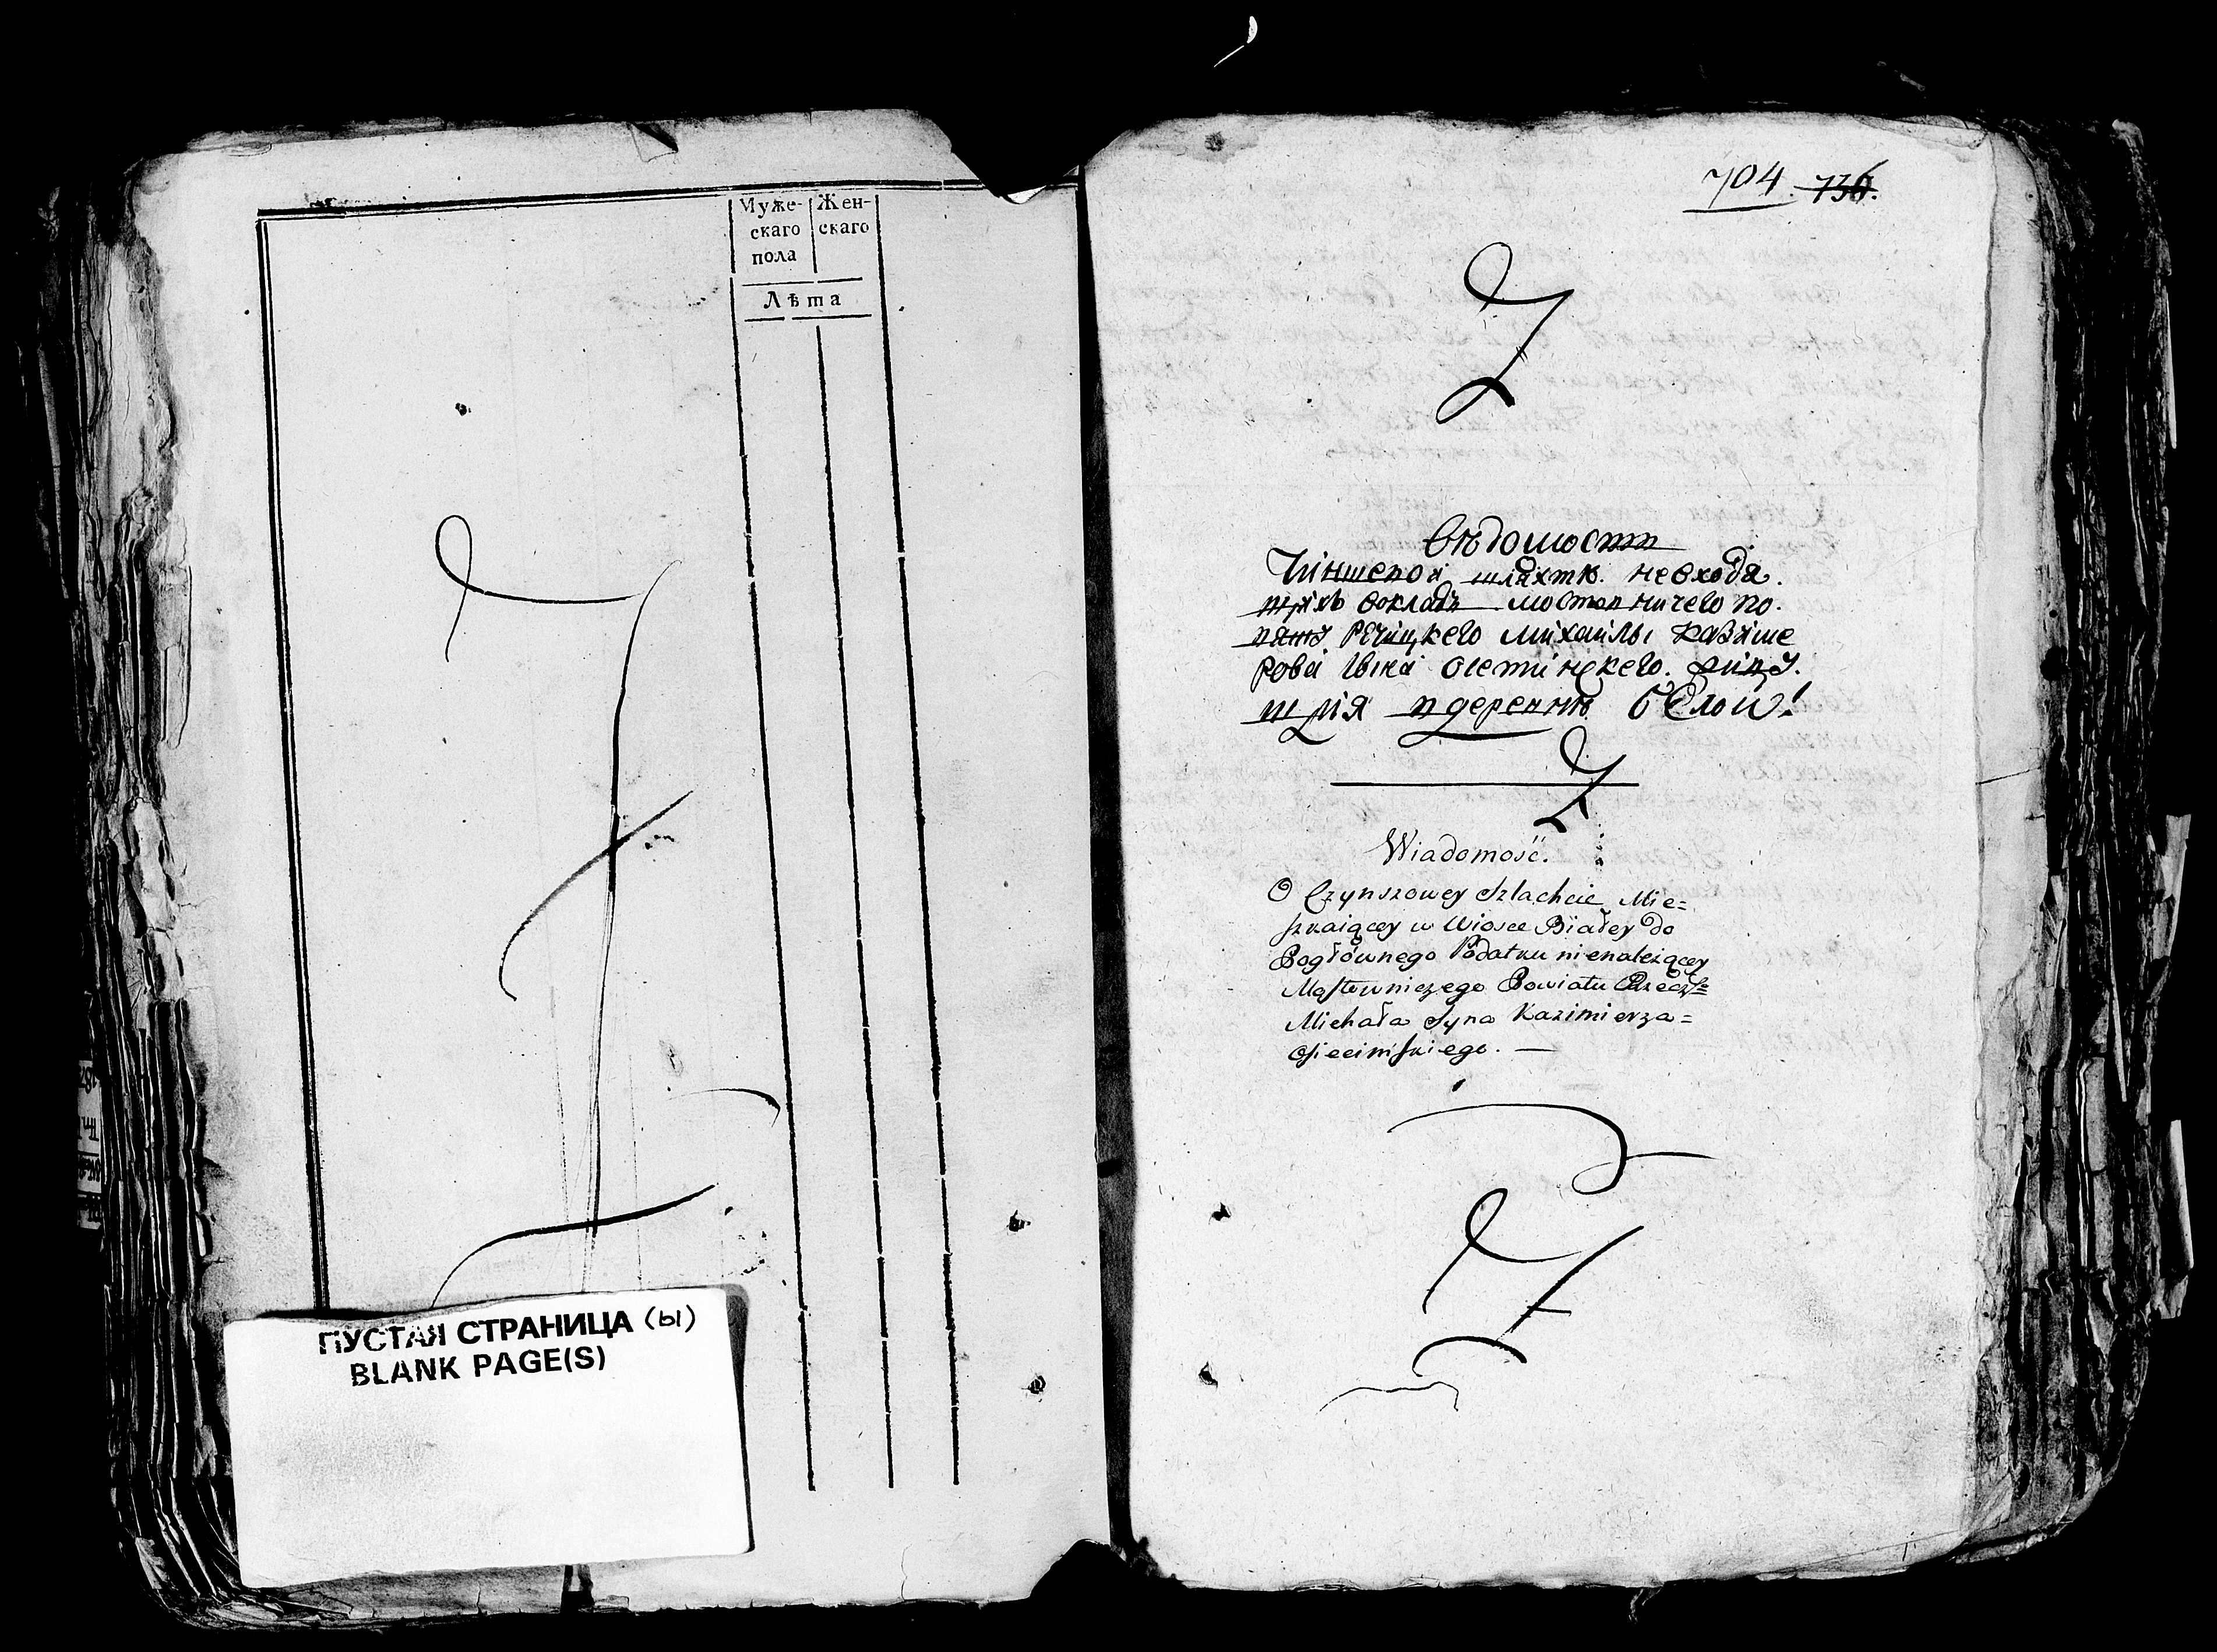 Муже- Жен-
скаго скаго
пола
Лѣта
ПУСТАЯ СТРАНИЦА (Ы)
BLANK PAGE(S)
704. 736.
Вѣдомость
Чиншевой шляхтѣ. невходя.
щихъ воклады мостовничего по.
вяту Речицкего Михаилы Казиме
рова Сына
деревни Белой!
Wiadomość.
O Czynszowey Szlachcie Mie=
szkaiącey w Wiosce Białey do
Pogłównego Podatku nienależącey
Mostowniczego Powiatu Rzecz=
Michała Syna Kazimierza=
Osiecimskiego. —